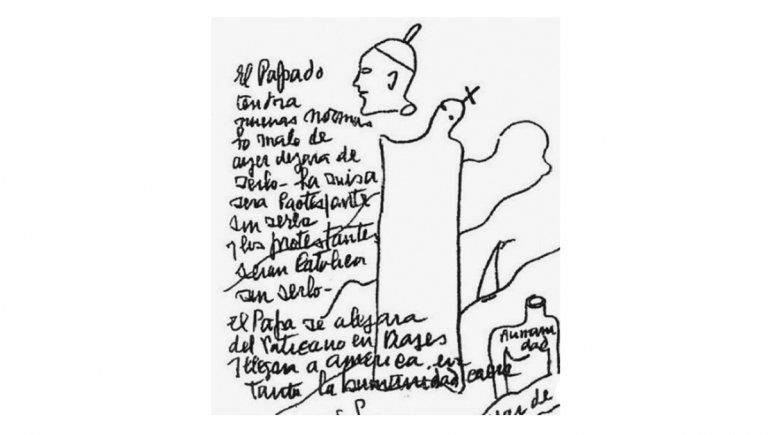 El Papado
tendra
nuevas normas
lo malo de
ayer dejara de
serlo - La misa
sera Protestante
sin serlo
y los protestantes
seran Catolicos
sin serlo -
El Papa se alejara
del Vaticano en viajes
y llegara a America en
tanto la humanidad caera
Humani
dad
de